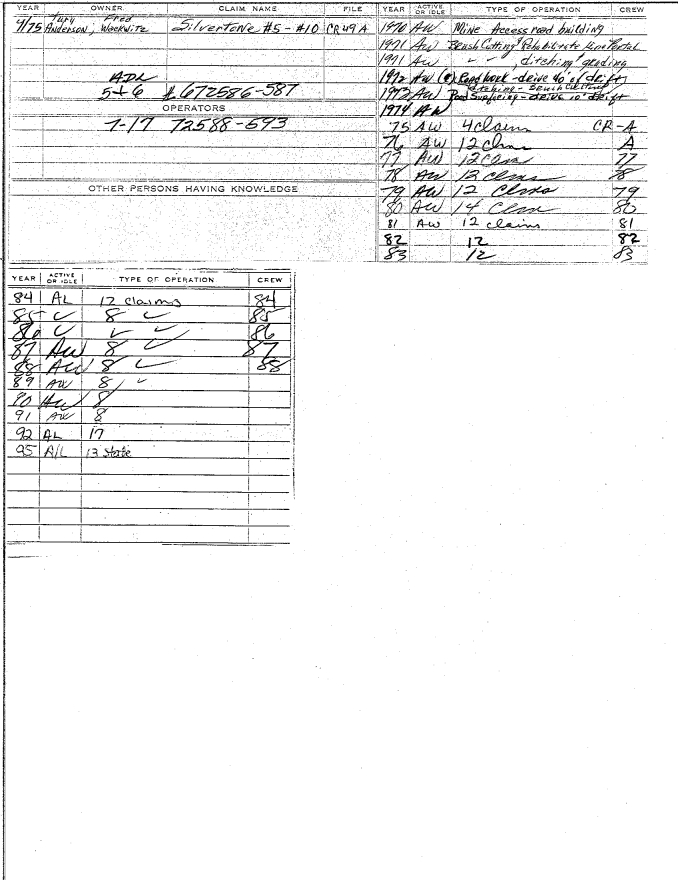 YEAR OWNER CLAIM NAME FILE
4/75 Jury Anderson, Fred Wackwitz Silvertone #5 - #10 CR 49 A
ADL
5+6 # 672586-587
OPERATORS
7-17 72588-593
OTHER PERSONS HAVING KNOWLEDGE
YEAR ACTIVE OR IDLE TYPE OF OPERATION CREW
1970 AW Mine Access road building
1971 AW Brush Cutting Rehabilitate Mine Portal
1971 AW " " ditching grading
1972 AW Road work - drive 40' of drift
1973 AW ditching - brush cutting
Road Surfacing - drive 10' drift
1974 AW
75 AW 4 claims CR-A
76 AW 12 clms A
77 AW 12 Clms 77
78 AW 12 clms 78
79 AW 12 Clms 79
80 AW 14 Clms 80
81 AW 12 claims 81
82 12 82
83 12 83
YEAR ACTIVE OR IDLE TYPE OF OPERATION CREW
84 AL 12 claims 84
85 ✓ 8 ✓ 85
86 ✓ ✓ ✓ 86
87 AW 8 ✓ 87
88 AW 8 ✓ 88
89 AW 8 ✓
90 AW 8
91 AW 8
92 AL 17
95 A/L 13 State